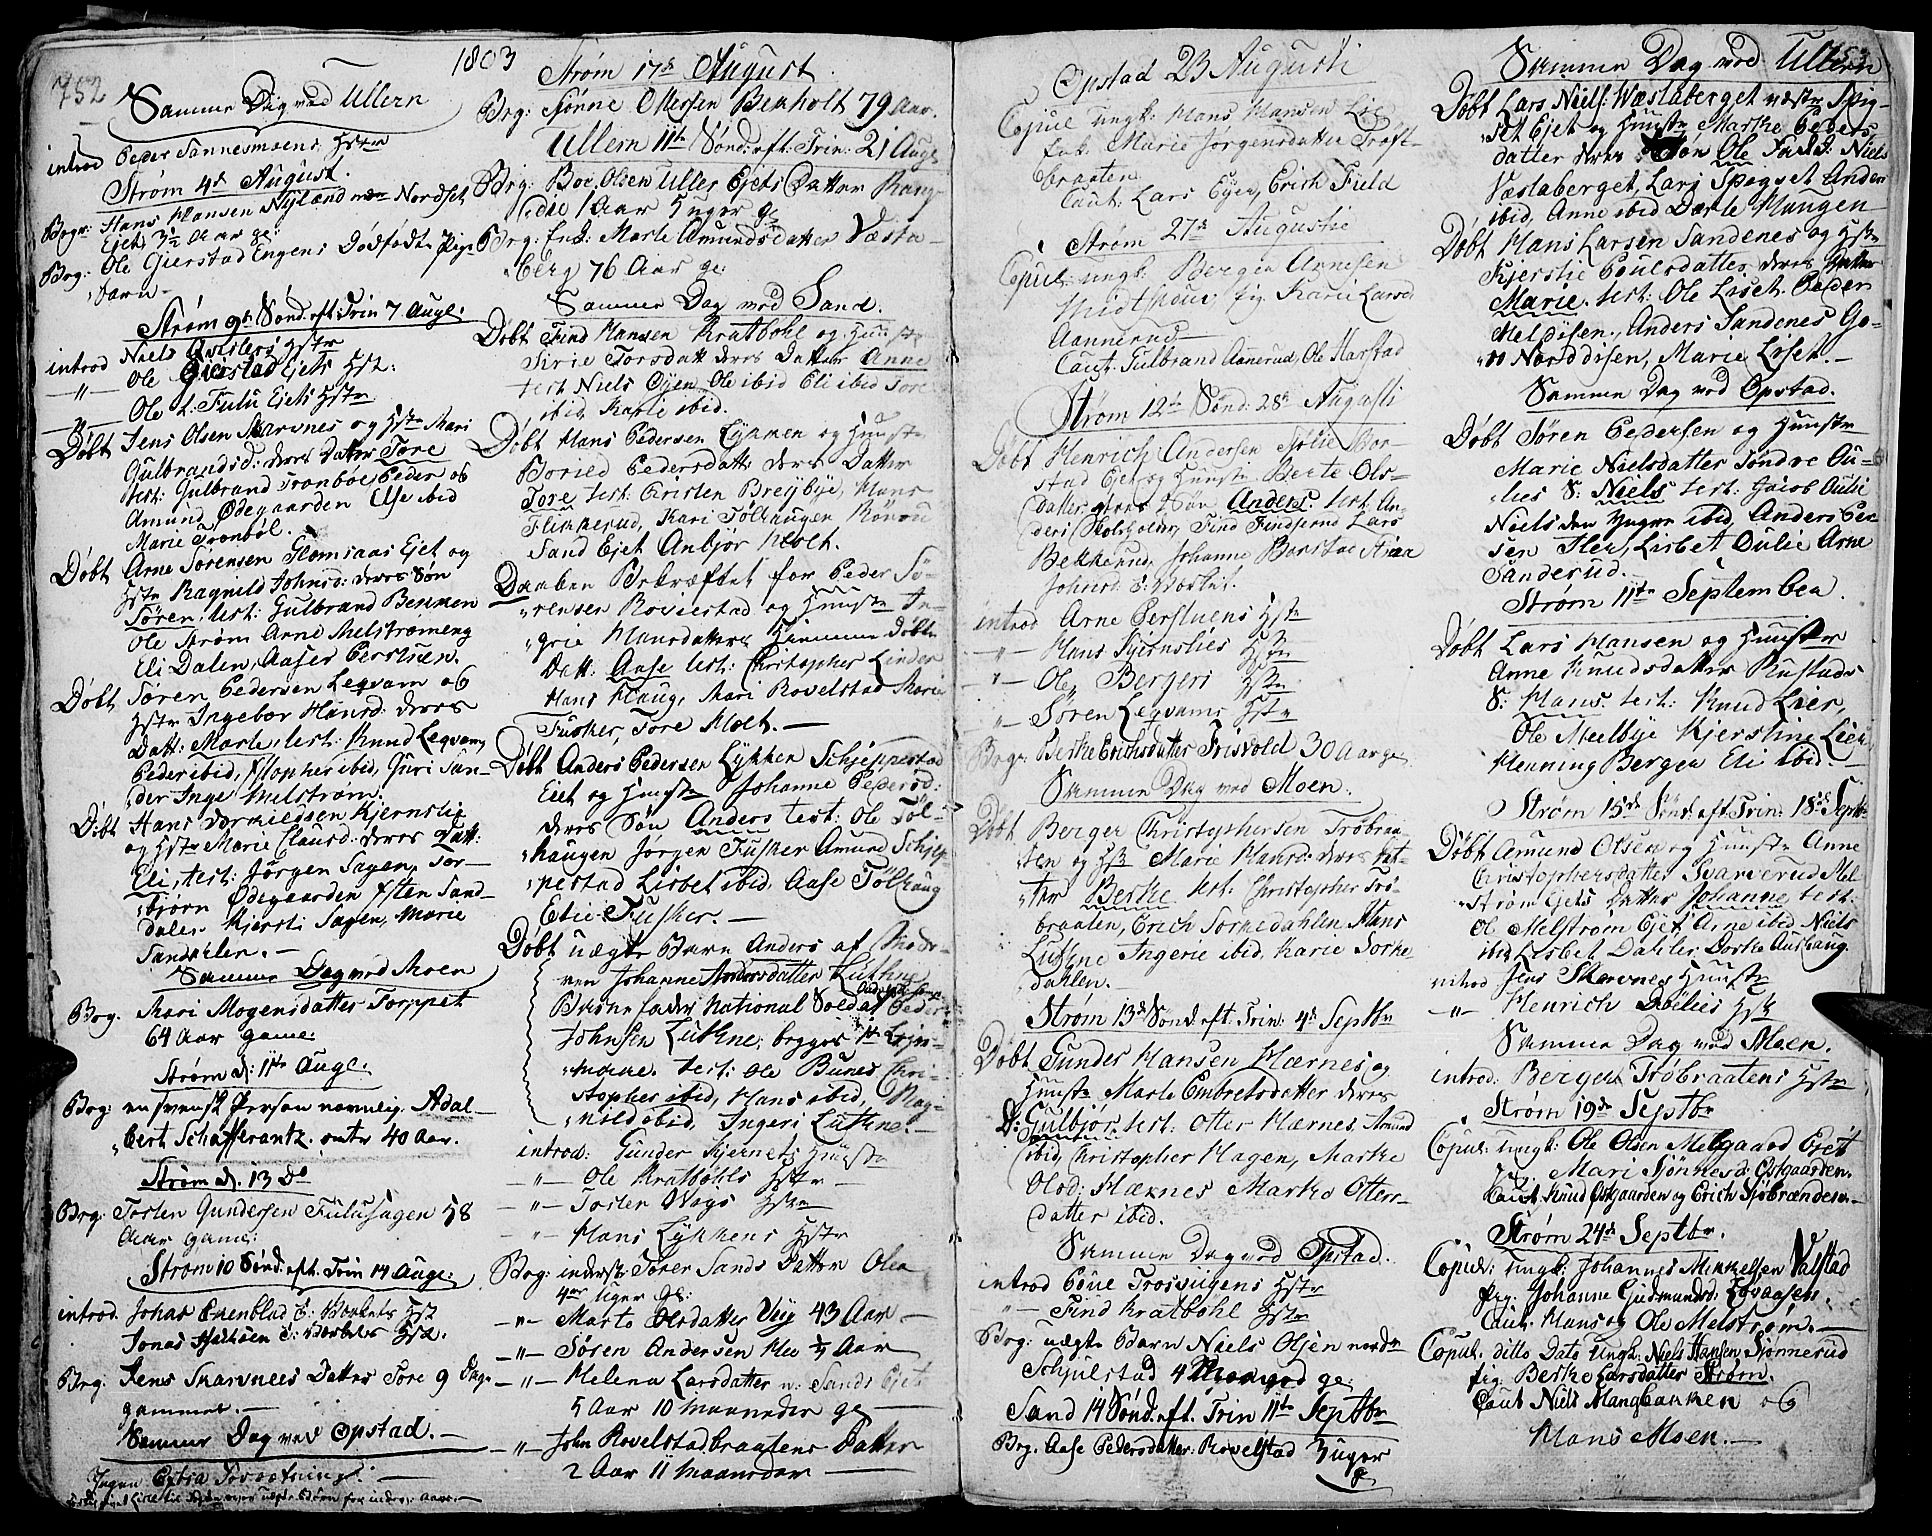 752
1803
Sammе Dag ved Ullern
introd Peder Sannesmoens Hstr
Strøm 4de August.
Begr: Hans Hansen Nyland Nordset
Ejet 3½ Aar ge:
Beg: Ole Gierstad Engens Dødfødte Pige
barn
Strøm 9de Sønd. eft. Trin 7 Augt:
introd Niels Hstr
-"- Ole Gierstad Ejets Hstr:
-"- Ole L. Fulu Ejets Hstr
Døbt Jens Olsen Skarvnes og Hstr Mari
Gulbrandsd: deres Datter Tore
test: Gulbrand Tronbøe Peder og
Amund Ødegaarden Else ibid
Marie Tronbøl.
Døbt Arne Sørensen Glomsaas Ejet og
Hstr Ragnild Johnsd: deres Søn
Søren, test: Gulbrand Bekken
Ole Strøm Arne Melstrømeng
Eli Dalen, Aase
Døbt Søren Pedersen Legvam og
Hstr Ingebor Hansd: deres
Datt: Marte, test: Knud Legvam,
Peder ibid, Xstopher ibid, Guri San-
der Inge Melstrøm.
Døbt Hans Kjernslie
og Hstr Marie Clausd: deres Datt:
Eli, test: Jørgen Sagen, Tor-
bjørn Ødegaarden Xsten Sand-
dalen Kjersti Sagen, Marie
Sanddalen.
Samme Dag ved Moen
Beg. Mari Mogensdatter Torppet
64 Aar game:
Strøm d: 11te Augt:
Beg: en svensk Person navnlig Adal-
bert Schafferantz omtr 40 Aar.
Strøm d: 13 Do
Beg: Tosten Gundersen Fulusagen 58
Aar game:
Strøm 10 Sønd: eft. Trin 14 Augt:
introd. Johan Ekenblad S: Verkets Hst
Jonas S: Verkets Hst.
Beg. Jens Skarvnes Datter Tore 9 Dage
gammel.
Samme Dag ved Opstad.
Ingen Extra Forretning.
Strøm 17de August.
Beg: Sjønne Ottersen Benholt 79 Aar.
Ullern 11te Sønd: eft: Trin: 21 Augt
Beg: Boe Olsen Uller Ejets Datter Rang-
die 1 Aar 5 uger ge
Beg: Enk: Marte Amundsdatter Væsta-
berg 76 Aar ge:
Samme Dag ved Sand.
Døbt Find Hansen Kratbøhl og Hunstr
Sirie Torsdatt deres Datter Anne
test Niels Øyen, Ole ibid Eli ibid Tore
ibid, Karie ibid.
Døbt Hans Pedersen Lykken og Hunstr
Boried Pedersdatt: deres Datter
Tore test: Cristen Breybye, Hans
Flikkerud, Kari Tølhaugen Rønou
Sand Ejet Anbjør Holt.
Daaben Bekræftet for Peder Sø-
rensen Rovelstad og Hunstr In-
grie Hansdatter Hiemme døbte
Datt: Aase test: Christopher Linder
Hans Haug, Mari Rovelstad Marie
Fusker Tore Holt.
Døbt Anders Pedersen Lykken Schjeppestad
Ejet og Hunstr Johanne Pedersd:
deres Søn Anders test: Ole Tøl-
haugen Jørgen Fusker Amund Schjep-
pestad Lisbet ibid, Aase Tølhaug
Elie Fusker.
Døbt uægte Barn Anders af Mode-
ren Johanne Andersdatter Luthne
Barnefader National Soldat Peder
Johnsen Luthne; begges 1te Leje-
maal. test: Ole Bunes Chri-
stopher ibid, Hans ibid, Rag-
nild ibid, Ingeri Luthne.
introd: Gunder Kjernets Hunstr
-"- Ole Kratbøhls Hstr
-"- Tosten Wogs Hstr
-"- Hans Lykkens Hstr
Beg: inderst Torer Sands Datter Olea
4 uger ge:
-"- Marte Olsdatter Viig 43 Aar
-"- Søren Andersen Moe ½ Aar
-"- Helena Larsdatter n: Sands Ejet
5 Aar 10 maaneder ge
-"- John Rovelstadbraatens Datter
2 Aar 11 maaneder
Opstad 23 Augusti
Copul ungk: Hans Hansen Lie
Enk: Marie Jørgensdatter Troft-
braaten
Caut: Lars Ejer, Erich Fjeld
Strøm 27de Augusti
Copul: ungk: Bergen Arnesen
Midtskoug pig. Karie Larsd
Aannerud
Caut. Gulbrand Aanerud, Ole Harstad
Strøm 12te Sønd: 28de Augusti
Døbt Henrich Andersen
stad Ejet og Hunstr Berte Ols-
datter deres Søn Anders. test. An-
ders Find Lars
Bekkerud, Johanne
Johnsd S: Verket.
introd Arne Perstuens Hstr
-"- Hans Kjernslies Hstr
-"- Ole Bergers Hstr
-"- Søren Legvams Hstr
Beg: Berthe Erichsdatter Frisvold 30 Aar ge
Samme Dag ved Moen.
Døbt Berger Christophersen Trøbraa-
ten og Hstr Marie Hansd: deres Dat-
ter Berthe test: Christopher Trø-
braaten, Erich Torkedahlen Hans
Luthne Ingerie ibid, Karie Torke-
dahlen.
Strøm 13de Sønd. eft. Trin: 4de Septbr
Døbt Gunder Hansen Hærnes og
Hunstr Marte Embretsdatter deres
D: Gulbjør. test: Otter Hærnes, Amund
ibid, Christopher Hagen, Marthe
Olsd: Hærnes Marthe Otters-
datter ibid.
Samme Dag ved Opstad.
introd Poul Trosvigens Hstr
-"- Find Kratbøhl Hstr
Beg: uægte Barn Niels Olsen nordre
Schjulstad 4 Maaned ge:
Sand 14 Sønd: eft. Trin 11te Septbr
Beg. Aase Pedersdatter Rovelstad 3 uger
g
Samme Dag ved Ullern
Døbt Lars Niels: Wæstaberget Spig-
set Ejet og Hunstr Marthe Peders
datter deres Søn Ole Fadd: Niels
Væstaberget, Lars Spigset Anders
ibid, Anne ibid Dorte Haugen
Døbt Hans Larsen Sandenes og Hstr
Kjerstie Poulsdatter deres Datter
Marie. test: Ole Liset. Peder
Meldisen, Anders Sandenes Go-
ro Norddisen, Marie Liset.
Samme Dag ved Opstad.
Døbt Søren Pedersen og Hunstr
Marie Nielsdatter Søndre Ou-
lies S: Niels test: Jacob Oulie
Niels den yngre ibid, Anders Peer
sen Lisbet Oulie Arne
Sanderud.
Strøm 11te September.
Døbt Lars Hansen og Hunstr
Anne Knudsdatter Rustads
S: Hans test: Knud Lier,
Ole Meelbye Kjerstine Lier
Henning Bergen Eli ibid.
Strøm 15de Sønd: eft. Trin: 18de Septbr
Døbt Amund Olsen og Hunstr Anne
Christophersdatter Svanerud Mel-
strøm Ejets Datter Johanne test:
Ol Melstrøm Ejet Arne ibid Niels
ibid Lisbet Dahler Dorthe Aurhaug.
introd Jens Skarvnes Hunstr
-"- Henrich Hstr
Samme Dag ved Moen.
introd: Berger Trøbraatens Hstr
Strøm 19de Septbr
Copul: ungk: Ole Olsen Melgaard Ejet
Pig: Mari Sjønnesd: Østgaarden.
Caut. Knud Østgaarden og Erich Sjøbrænden.
Strøm 24de Septbr.
Copul: ungk: Johannes Mikkelsen Valstad
pig: Johanne Gudmundsd: Løvaasen.
Caut. Hans og Ole Melstrøm.
Copul: ditto Dato ungk: Niels Hansen Sjønnerud
pig: Berthe Larsdatter Strøm.
Caut Niels Mangbakken og
Hans Moen.